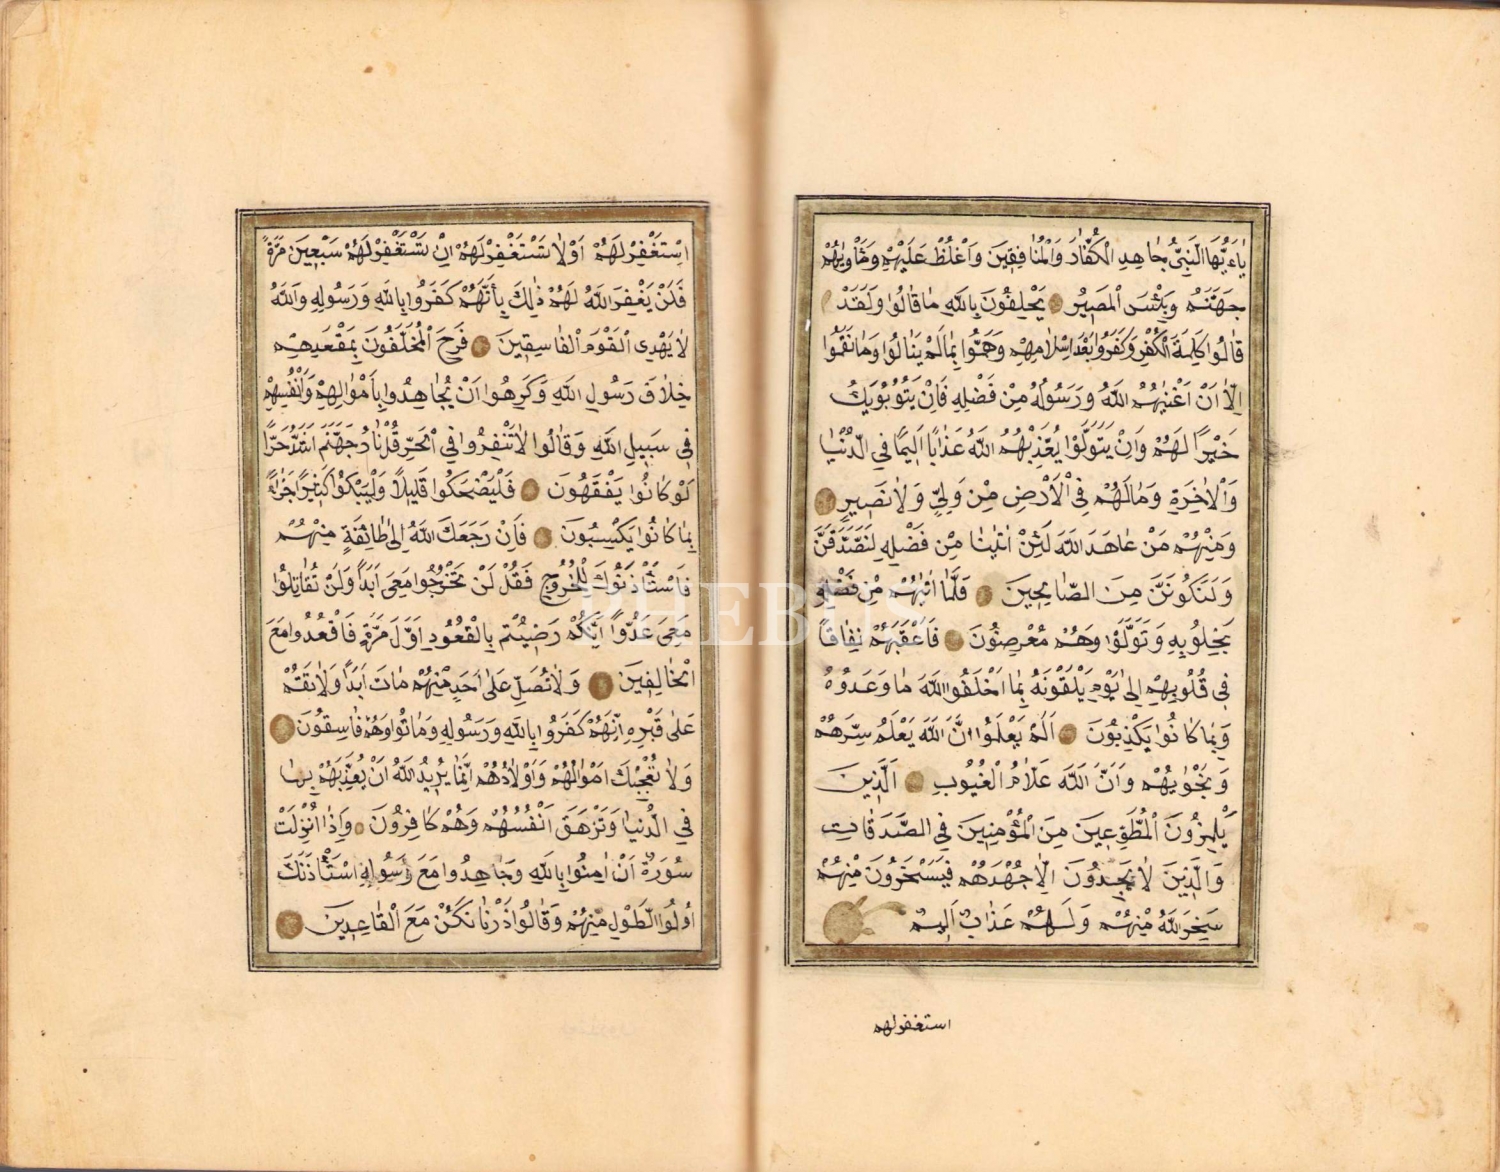 يَاءَيُّهَا النَّبِىُّ جَاهِدِ الْكُفَّارَ وَالْمُنَافِقِينَ وَاغْلُظْ عَلَيْهِمْ وَمَأْوٰيهُمْ
جَهَنَّمُ وَبِئْسَ الْمَصِيرُ يَحْلِفُونَ بِاللّٰهِ مَا قَالُوا وَلَقَدْ
قَالُوا كَلِمَةَ الْكُفْرِ وَكَفَرُوا بَعْدَ اِسْلَامِهِمْ وَهَمُّوا بِمَا لَمْ يَنَالُوا وَمَا نَقَمُوا
اِلَّا اَنْ اَغْنٰيهُمُ اللّٰهُ وَرَسُولُهُ مِنْ فَضْلِهِ فَاِنْ يَتُوبُوا يَكُ
خَيْرًا لَهُمْ وَاِنْ يَتَوَلَّوْا يُعَذِّبْهُمُ اللّٰهُ عَذَابًا اَلِيمًا فِي الدُّنْيَا
وَالْاٰخِرَةِ وَمَا لَهُمْ فِي الْاَرْضِ مِنْ وَلِيٍّ وَلَا نَصِيرٍ
وَمِنْهُمْ مَنْ عَاهَدَ اللّٰهَ لَئِنْ اٰتٰينَا مِنْ فَضْلِهِ لَنَصَّدَّقَنَّ
وَلَنَكُونَنَّ مِنَ الصَّالِحِينَ فَلَمَّا اٰتٰيهُمْ مِنْ فَضْلِهِ
بَخِلُوا بِهِ وَتَوَلَّوْا وَهُمْ مُعْرِضُونَ فَاَعْقَبَهُمْ نِفَاقًا
فِي قُلُوبِهِمْ اِلٰى يَوْمِ يَلْقَوْنَهُ بِمَا اَخْلَفُوا اللّٰهَ مَا وَعَدُوهُ
وَبِمَا كَانُوا يَكْذِبُونَ اَلَمْ يَعْلَمُوا اَنَّ اللّٰهَ يَعْلَمُ سِرَّهُمْ
وَنَجْوٰيهُمْ وَاَنَّ اللّٰهَ عَلَّامُ الْغُيُوبِ اَلَّذِينَ
يَلْمِزُونَ الْمُطَّوِّعِينَ مِنَ الْمُؤْمِنِينَ فِي الصَّدَقَاتِ
وَالَّذِينَ لَا يَجِدُونَ اِلَّا جُهْدَهُمْ فَيَسْخَرُونَ مِنْهُمْ
سَخِرَ اللّٰهُ مِنْهُمْ وَلَهُمْ عَذَابٌ اَلِيمٌ
استغفرلهم
اِسْتَغْفِرْ لَهُمْ اَوْ لَا تَسْتَغْفِرْ لَهُمْ اِنْ تَسْتَغْفِرْ لَهُمْ سَبْعِينَ مَرَّةً
فَلَنْ يَغْفِرَ اللّٰهُ لَهُمْ ذٰلِكَ بِاَنَّهُمْ كَفَرُوا بِاللّٰهِ وَرَسُولِهِ وَاللّٰهُ
لَا يَهْدِى الْقَوْمَ الْفَاسِقِينَ فَرِحَ الْمُخَلَّفُونَ بِمَقْعَدِهِمْ
خِلَافَ رَسُولِ اللّٰهِ وَكَرِهُوا اَنْ يُجَاهِدُوا بِاَمْوَالِهِمْ وَاَنْفُسِهِمْ
فِي سَبِيلِ اللّٰهِ وَقَالُوا لَا تَنْفِرُوا فِي الْحَرِّ قُلْ نَارُ جَهَنَّمَ اَشَدُّ حَرًّا
لَوْ كَانُوا يَفْقَهُونَ فَلْيَضْحَكُوا قَلِيلًا وَلْيَبْكُوا كَثِيرًا جَزَاءً
بِمَا كَانُوا يَكْسِبُونَ فَاِنْ رَجَعَكَ اللّٰهُ اِلٰى طَائِفَةٍ مِنْهُمْ
فَاسْتَأْذَنُوكَ لِلْخُرُوجِ فَقُلْ لَنْ تَخْرُجُوا مَعِىَ اَبَدًا وَلَنْ تُقَاتِلُوا
مَعِىَ عَدُوًّا اِنَّكُمْ رَضِيتُمْ بِالْقُعُودِ اَوَّلَ مَرَّةٍ فَاقْعُدُوا مَعَ
الْخَالِفِينَ وَلَا تُصَلِّ عَلٰى اَحَدٍ مِنْهُمْ مَاتَ اَبَدًا وَلَا تَقُمْ
عَلٰى قَبْرِهِ اِنَّهُمْ كَفَرُوا بِاللّٰهِ وَرَسُولِهِ وَمَاتُوا وَهُمْ فَاسِقُونَ
وَلَا تُعْجِبْكَ اَمْوَالُهُمْ وَاَوْلَادُهُمْ اِنَّمَا يُرِيدُ اللّٰهُ اَنْ يُعَذِّبَهُمْ بِهَا
فِي الدُّنْيَا وَتَزْهَقَ اَنْفُسُهُمْ وَهُمْ كَافِرُونَ وَاِذَا اُنْزِلَتْ
سُورَةٌ اَنْ اٰمِنُوا بِاللّٰهِ وَجَاهِدُوا مَعَ رَسُولِهِ اسْتَأْذَنَكَ
اُولُوا الطَّوْلِ مِنْهُمْ وَقَالُوا ذَرْنَا نَكُنْ مَعَ الْقَاعِدِينَ
PHEBUS